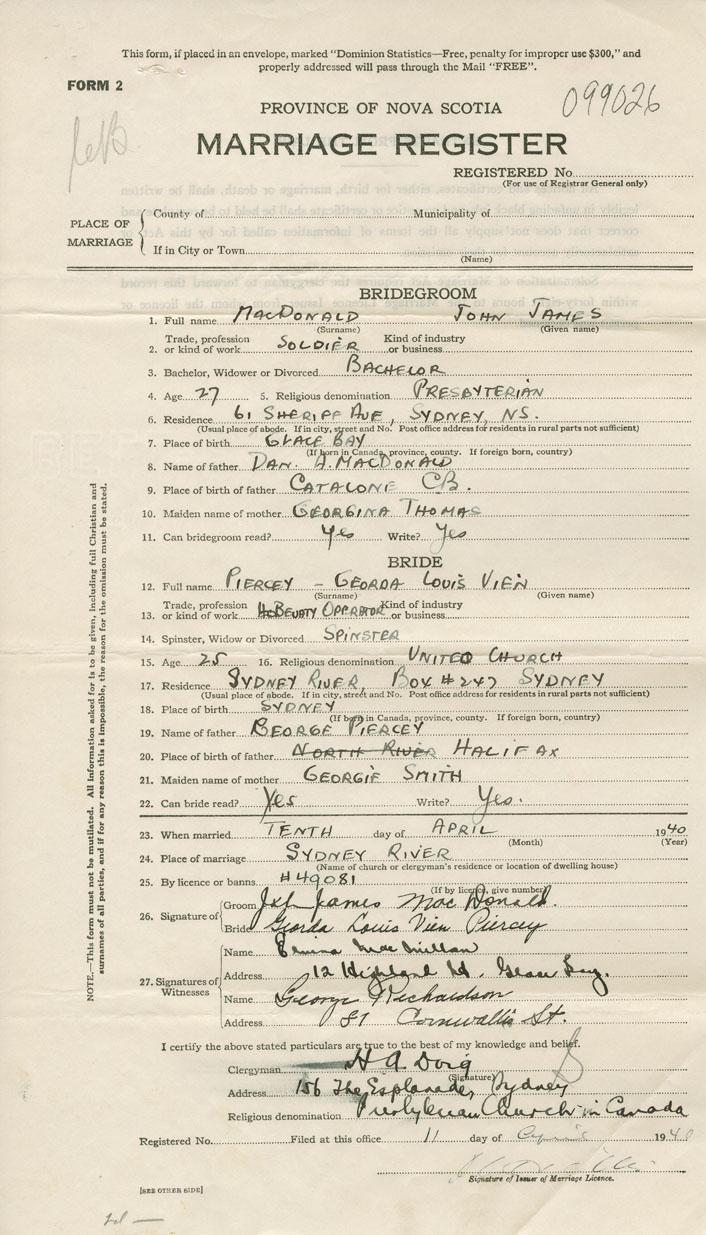 This form, if placed in an envelope, marked "Dominion Statistics—Free, penalty for improper use $300," and
properly addressed will pass through the Mail "FREE".
FORM 2
099026
PROVINCE OF NOVA SCOTIA
MARRIAGE REGISTER
REGISTERED No.
(For use of Registrar General only)
PLACE OF MARRIAGE
County of Municipality of
If in City or Town
(Name)
BRIDEGROOM
1. Full name MACDONALD JOHN JAMES
(Surname) (Given name)
2. Trade, profession or kind of work SOLDIER Kind of industry or business
3. Bachelor, Widower or Divorced BACHELOR
4. Age 27 5. Religious denomination PRESBYTERIAN
6. Residence 61 SHERIFF AVE, SYDNEY, NS.
(Usual place of abode. If in city, street and No. Post office address for residents in rural parts not sufficient)
7. Place of birth GLACE BAY
(If born in Canada, province, county. If foreign born, country)
8. Name of father DAN. A. MACDONALD
9. Place of birth of father CATALONE CB.
10. Maiden name of mother GEORGINA THOMAS
11. Can bridegroom read? Yes Write? Yes
BRIDE
12. Full name PIERCEY - GEORDA LOUIS VIEN
(Surname) (Given name)
13. Trade, profession or kind of work BEUATY OPERATOR Kind of industry or business
14. Spinster, Widow or Divorced SPINSTER
15. Age 25 16. Religious denomination UNITED CHURCH
17. Residence SYDNEY RIVER, BOX #247 SYDNEY
(Usual place of abode. If in city, street and No. Post office address for residents in rural parts not sufficient)
18. Place of birth SYDNEY
(If born in Canada, province, county. If foreign born, country)
19. Name of father GEORGE PIERCEY
20. Place of birth of father NORTH RIVER HALIFAX
21. Maiden name of mother GEORGIE SMITH
22. Can bride read? Yes Write? Yes.
23. When married TENTH day of APRIL 1940
(Month) (Year)
24. Place of marriage SYDNEY RIVER
(Name of church or clergyman's residence or location of dwelling house)
25. By licence or banns #49081
(If by licence, give number)
26. Signature of
Groom James MacDonald.
Bride Georda Louis Vien Piercey
27. Signatures of Witnesses
Name MacMillan
Address 12 Highland St. Glace Bay.
Name George Richardson
Address 81 Cornwallis St.
I certify the above stated particulars are true to the best of my knowledge and belief.
Clergyman H A Doig
(Signature)
Address 156 The Esplanade, Sydney
Religious denomination Presbyterian Church in Canada
Registered No. Filed at this office 11 day of April 1940
Signature of Issuer of Marriage Licence.
[SEE OTHER SIDE]
NOTE.—This form must not be mutilated. All information asked for is to be given, including full Christian and
surnames of all parties, and if for any reason this is impossible, the reason for the omission must be stated.